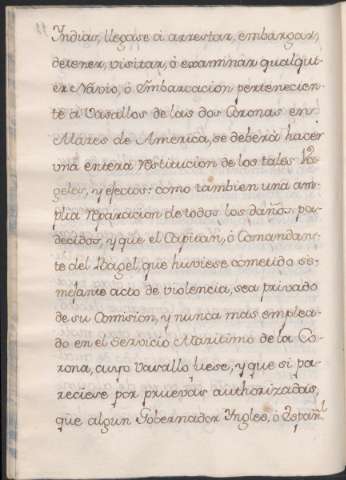 Yndias, llegase à arrestar, embargar,
detener, visitar, ò examinàr qualqui-
er Navio, ò Imbarcacion pertenecien-
te â Vasallos de las dos Coronas en
Mares de America, se deberà hacer
una entera restitucion de los tales Ba-
geles, y efectos: como tambien una am-
plia reparacion de todos los daños, pa-
decidos, y que el Capitan, ò Comandan-
te del Bagel, que huviese cometido se-
mejante acto de violencia, sea privado
de su Comision, y nunca mas emplea-
do en el Servicio Maritimo de la Co-
rona, cuyo Vasallo fuese, y que si pa-
reciese por pruevas authorizadas,
que algun Gobernador Ingles, ò Españl